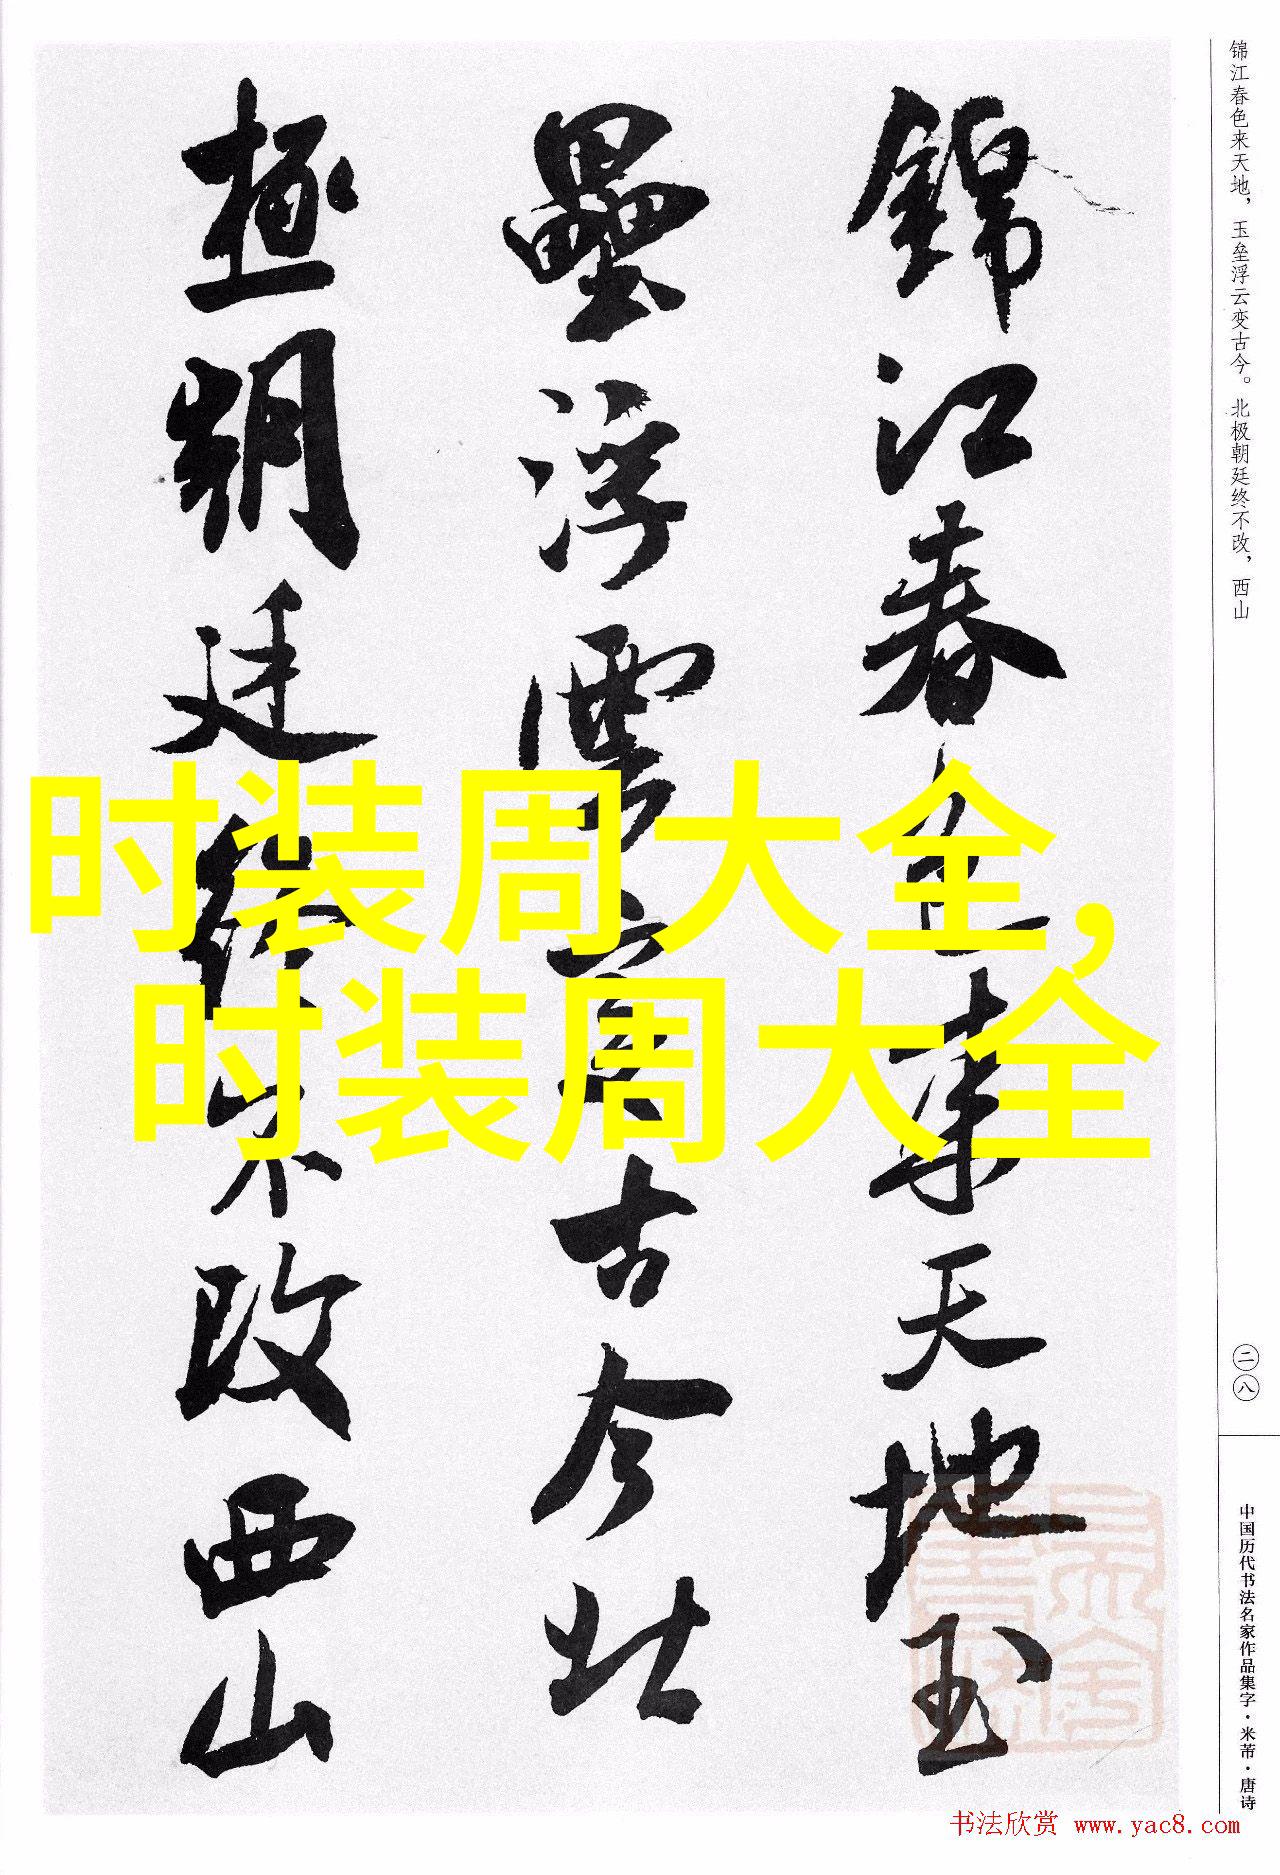 錦江春色来天地玉
壘浮雲變古今北
極朝廷終不改西山
时装周大全，
时装周大全
锦江春色来天地，玉垒浮云变古今。北极朝廷终不改，西山
二八
中国历代书法名家作品集字·米芾·唐诗
书法欣赏 www.yac8.com